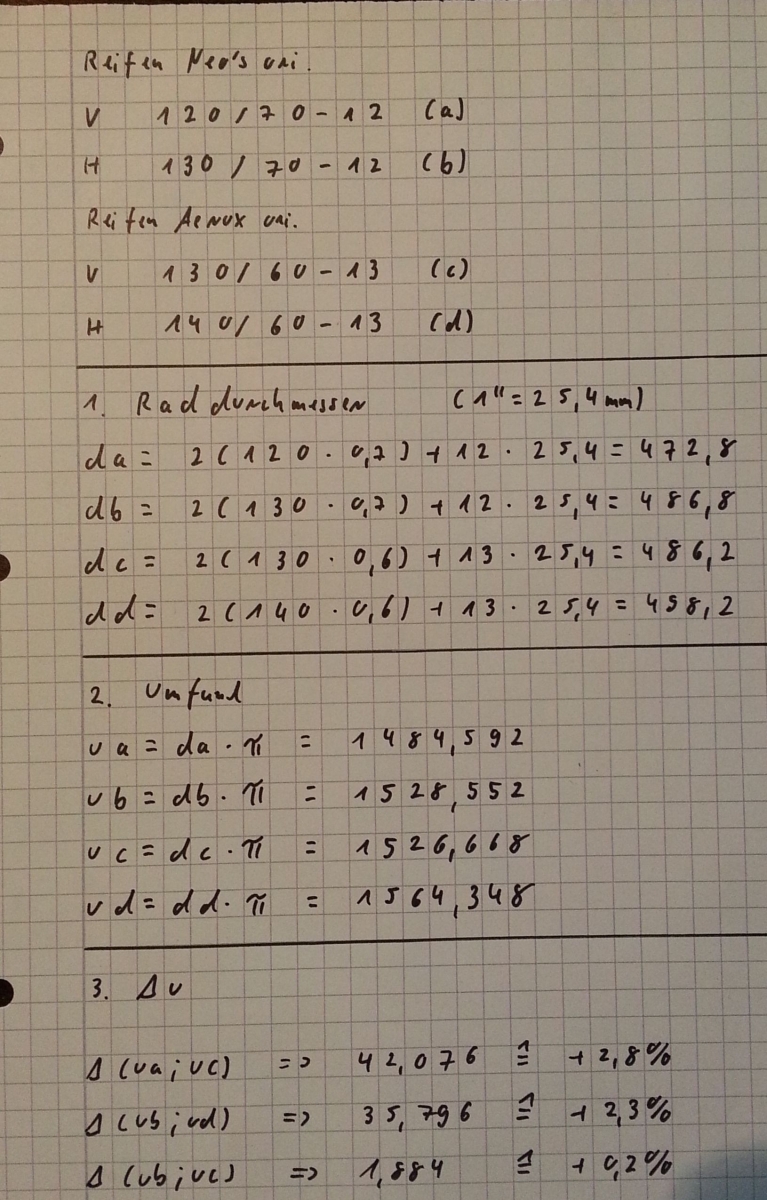 Reifen Neo's ori.
V 120/70-12 (a)
H 130/70-12 (b)
Reifen Aerox ori.
V 130/60-13 (c)
H 140/60-13 (d)
1. Raddurchmesser (1"=25,4mm)
da = 2(120 · 0,7) + 12 · 25,4 = 472,8
db = 2(130 · 0,7) + 12 · 25,4 = 486,8
dc = 2(130 · 0,6) + 13 · 25,4 = 486,2
dd = 2(140 · 0,6) + 13 · 25,4 = 498,2
2. Umfang
ua = da · π = 1484,592
ub = db · π = 1528,552
uc = dc · π = 1526,668
ud = dd · π = 1564,348
3. Δu
Δ(ua;uc) => 42,076 ≙ +2,8%
Δ(ub;ud) => 35,796 ≙ +2,3%
Δ(ub;uc) => 1,884 ≙ +0,2%